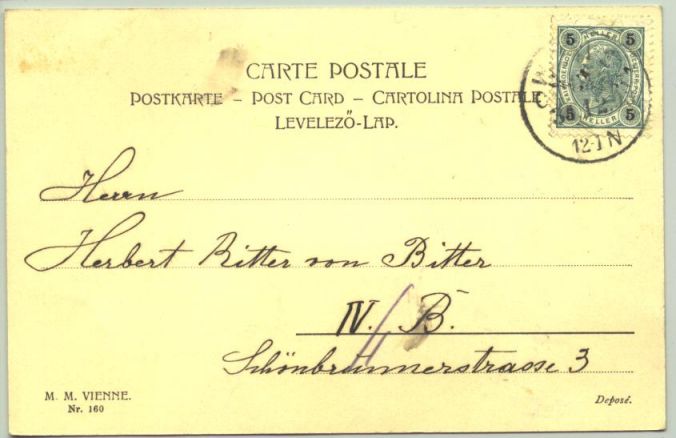 CARTE POSTALE
POSTKARTE – POST CARD – CARTOLINA POSTALE
LEVELEZŐ-LAP.
5 HELLER 5
5 HELLER 5
12-1 N
Herrn
Herbert Ritter von Bitter
IV. B.
Schönbrunnerstrasse 3
M. M. VIENNE.
Nr. 160
Deposé.